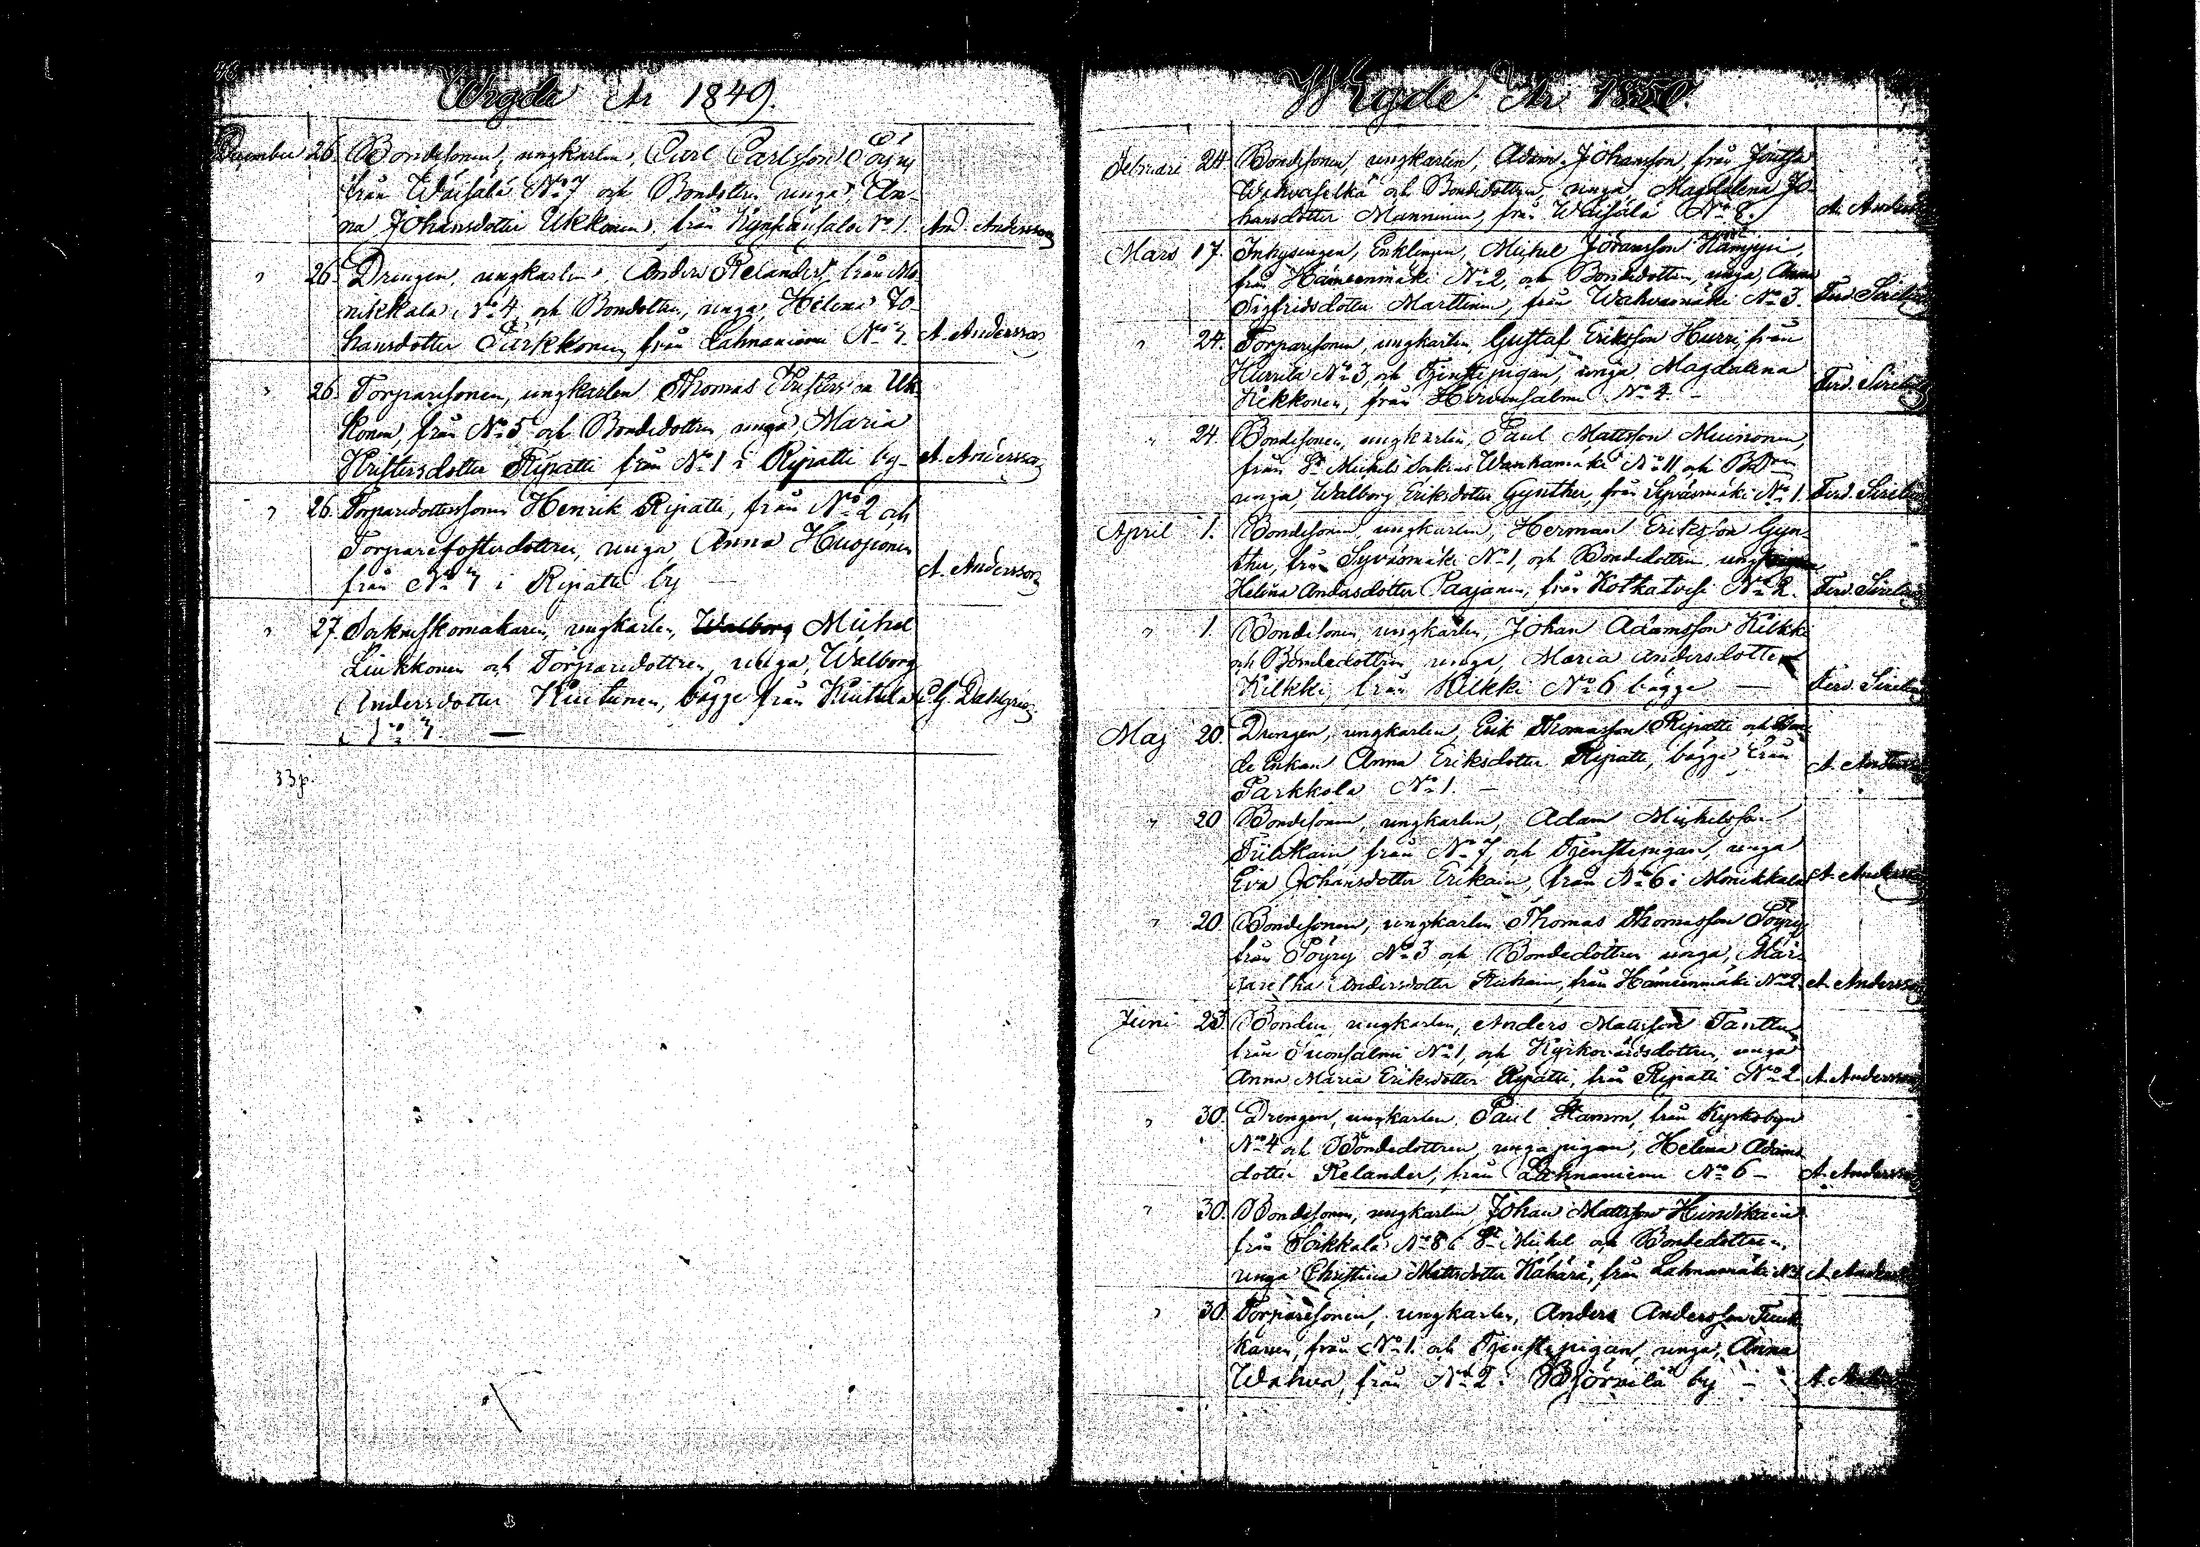 48
Wigde År 1849.
December 26. Bondesonen, ungkarlen, Carl Carlsson Pöyry
från Waisälä No 7 och Bondedotren unga, An-
na Johansdotter Ukkonen, från Kynsänsalo No 1. And. Andersson
" 26. Drengen, ungkarlen, Anders Relander från Mo-
nikkala No 4 och Bondedottren, unga, Helena Jo-
hansdotter Parkkonen från Lahnaniemi No 7. A. Andersson
" 26. Torparesonen, ungkarlen Thomas Kristersson Uk-
konen, från No 5 och Bondedottren unga Maria
Kristersdotter Ripatti från No 1 i Ripatti by – A. Andersson
" 26. Torparedottersonen Henrik Ripatti, från No 2 och
Torparefosterdottren, unga Anna Husponen
från No 7 i Ripatti by — A. Andersson
" 27. Sockneskomakaren, ungkarlen, Walborg Michel
Liukkonen och Torparedottren, unga, Walborg
Andersdotter Kiutunen, bägge från Kiutula C. G. Dahlgren
No 7. —
33 p.
Wigde År 1850.
Februari 24. Bondesonen, ungkarlen, Adam Johansson, från Joutsa
och Bondedottren, unga, Magdalena Jo-
hansdotter Manninen, från Waisälä No 2. A. Andersson
Mars 17. Inhysingen, Enklingen, Michel Johansson
från Hämeenmäki No 2, och Bondedottren, unga, Anna
Sigfridsdotter Marttinen, från Wahvamäki No 3. Ferd. Sirelius
" 24. Torparesonen, ungkarlen, Gustaf Eriksson Hurri, från
Hurrila No 3, och Tjenstepigan, unga Magdalena
Kekkonen, från Hirvensalmi No 4. – Ferd. Sirelius
" 24. Bondesonen, ungkarlen, Paul Mattsson Muinonen,
från St Michels Sockens Wanhamäki No 11 och
unga, Walborg Eriksdotter Gynther, från Syväsmäki No 1. Ferd. Sirelius
April 1. Bondesonen, ungkarlen, Herman Eriksson Gyn-
ther, från Syväsmäki No 1, och Bondedottren unga
Helena Andersdotter Paajanen, från Kotkatvesi No 2. Ferd. Sirelius
" 1. Bondesonen, ungkarlen, Johan Adamsson Kilkki
och Bondedottren unga, Maria Andersdotter
Kilkki, från Kilkki No 6 bägge — Ferd. Sirelius
Maj 20. Drengen, ungkarlen, Erik Thomasson Ripatti och Bon-
de Enkan Anna Eriksdotter Ripatti, bägge från
Parkkola No 1. – A. Andersson
" 20 Bondesonen, ungkarlen, Adam Michelsson
Tiilikain, från No 7, och Tjenstepigan, unga
Eva Johansdotter Erikain, från No 6 i Monikkala A. Andersson
" 20. Bondesonen, ungkarlen Thomas Thomasson Pöyry
från Pöyry No 3 och Bondedottren unga, Mar-
garetha Andersdotter från Hämeenmäki No 2. A. Andersson
Juni 23. Bonden, ungkarlen, Anders Mattsson Tanttu,
från No 1, och Kyrkovärdsdottren, unga
Anna Maria Eriksdotter Ripatti, från Ripatti No 2 A. Andersson
" 30. Drengen, ungkarlen Paul Stamm, från Kyrkobyn
No 4 och Bondedottren, unga pigan, Helena Adams-
dotter Relander, från Lahnaniemi No 6 – A. Andersson
" 30. Bondesonen, ungkarlen Johan Mattsson
från No 8 i St Michel och Bondedottren,
unga Christina Mattsdotter Häkärä, från Lahnamäki No 1 A. Andersson
" 30. Torparesonen, ungkarlen, Anders Andersson
från No 1. och Tjenstepigan, unga, Anna
Wahva, från No 2 i Björnilä by – A. Andersson